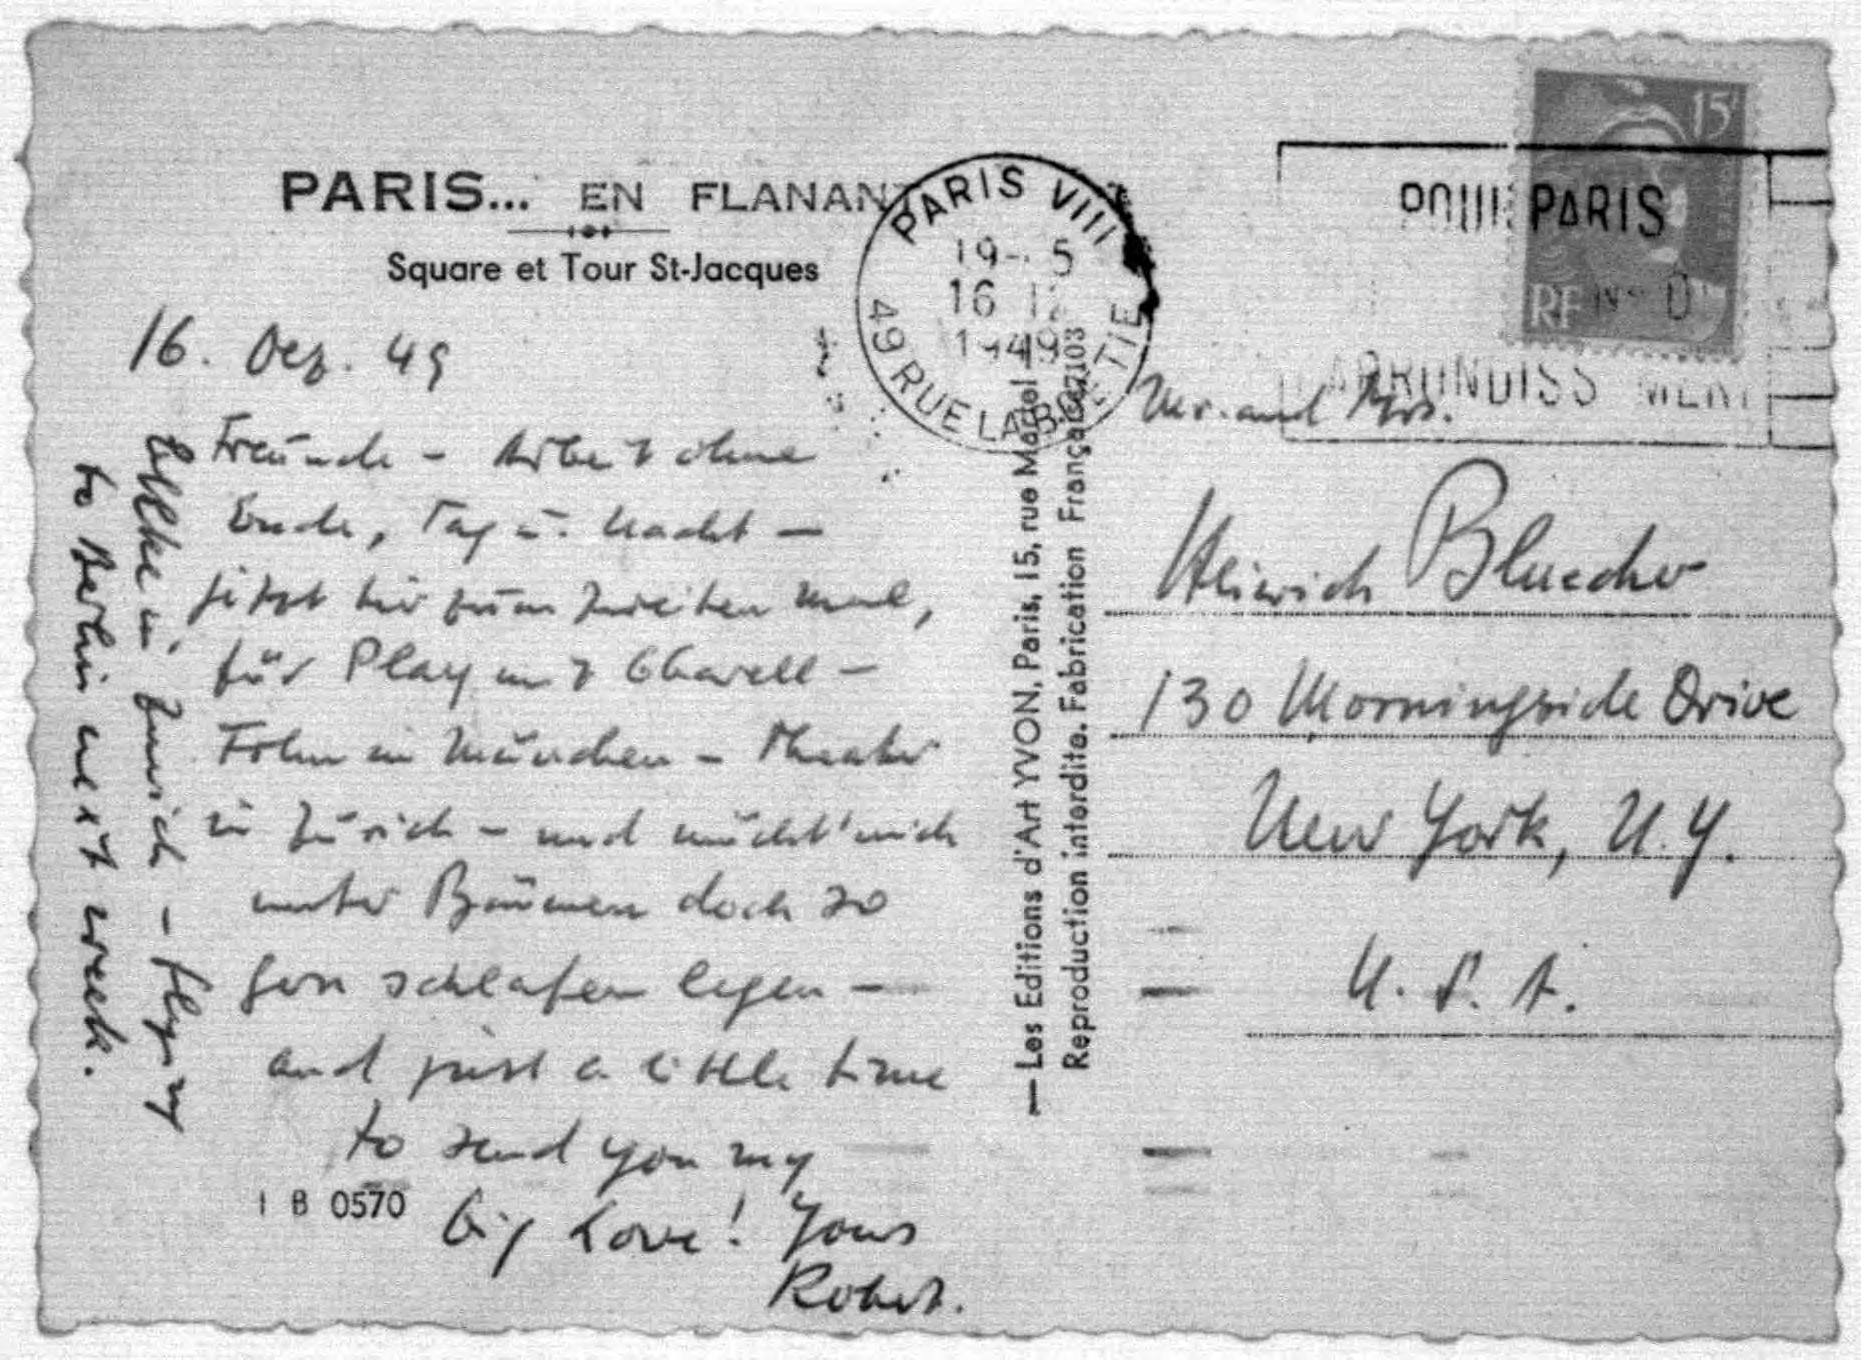 PARIS... EN FLANAN
Square et Tour St-Jacques
16. Dez. 49
Freunde - Arbeit ohne
Ende, Tag u. Nacht -
jetzt hier zum zweiten Mal,
für Play mit Charell -
Film in München - Theater
in Zürich - und möcht' mich
unter Bäumen doch so
gern schlafen legen -
and just a little time
to send you my
big Love! Yours
Robert.
in Zurich - flying
to Berlin next week.
I B 0570
PARIS VIII
19- 5
16 12
1949
49 RUE LA BOETIE
— Les Editions d'Art YVON, Paris, 15, rue Martel
Reproduction interdite. Fabrication Française 7103
15
RF
PARIS
ARRONDISS MENT
Mr. and Mrs.
Heinrich Bluecher
130 Morningside Drive
New York, N.Y.
U.S.A.